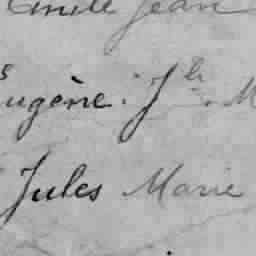 Emile Jean
Eugène. Jh. M
Jules Marie